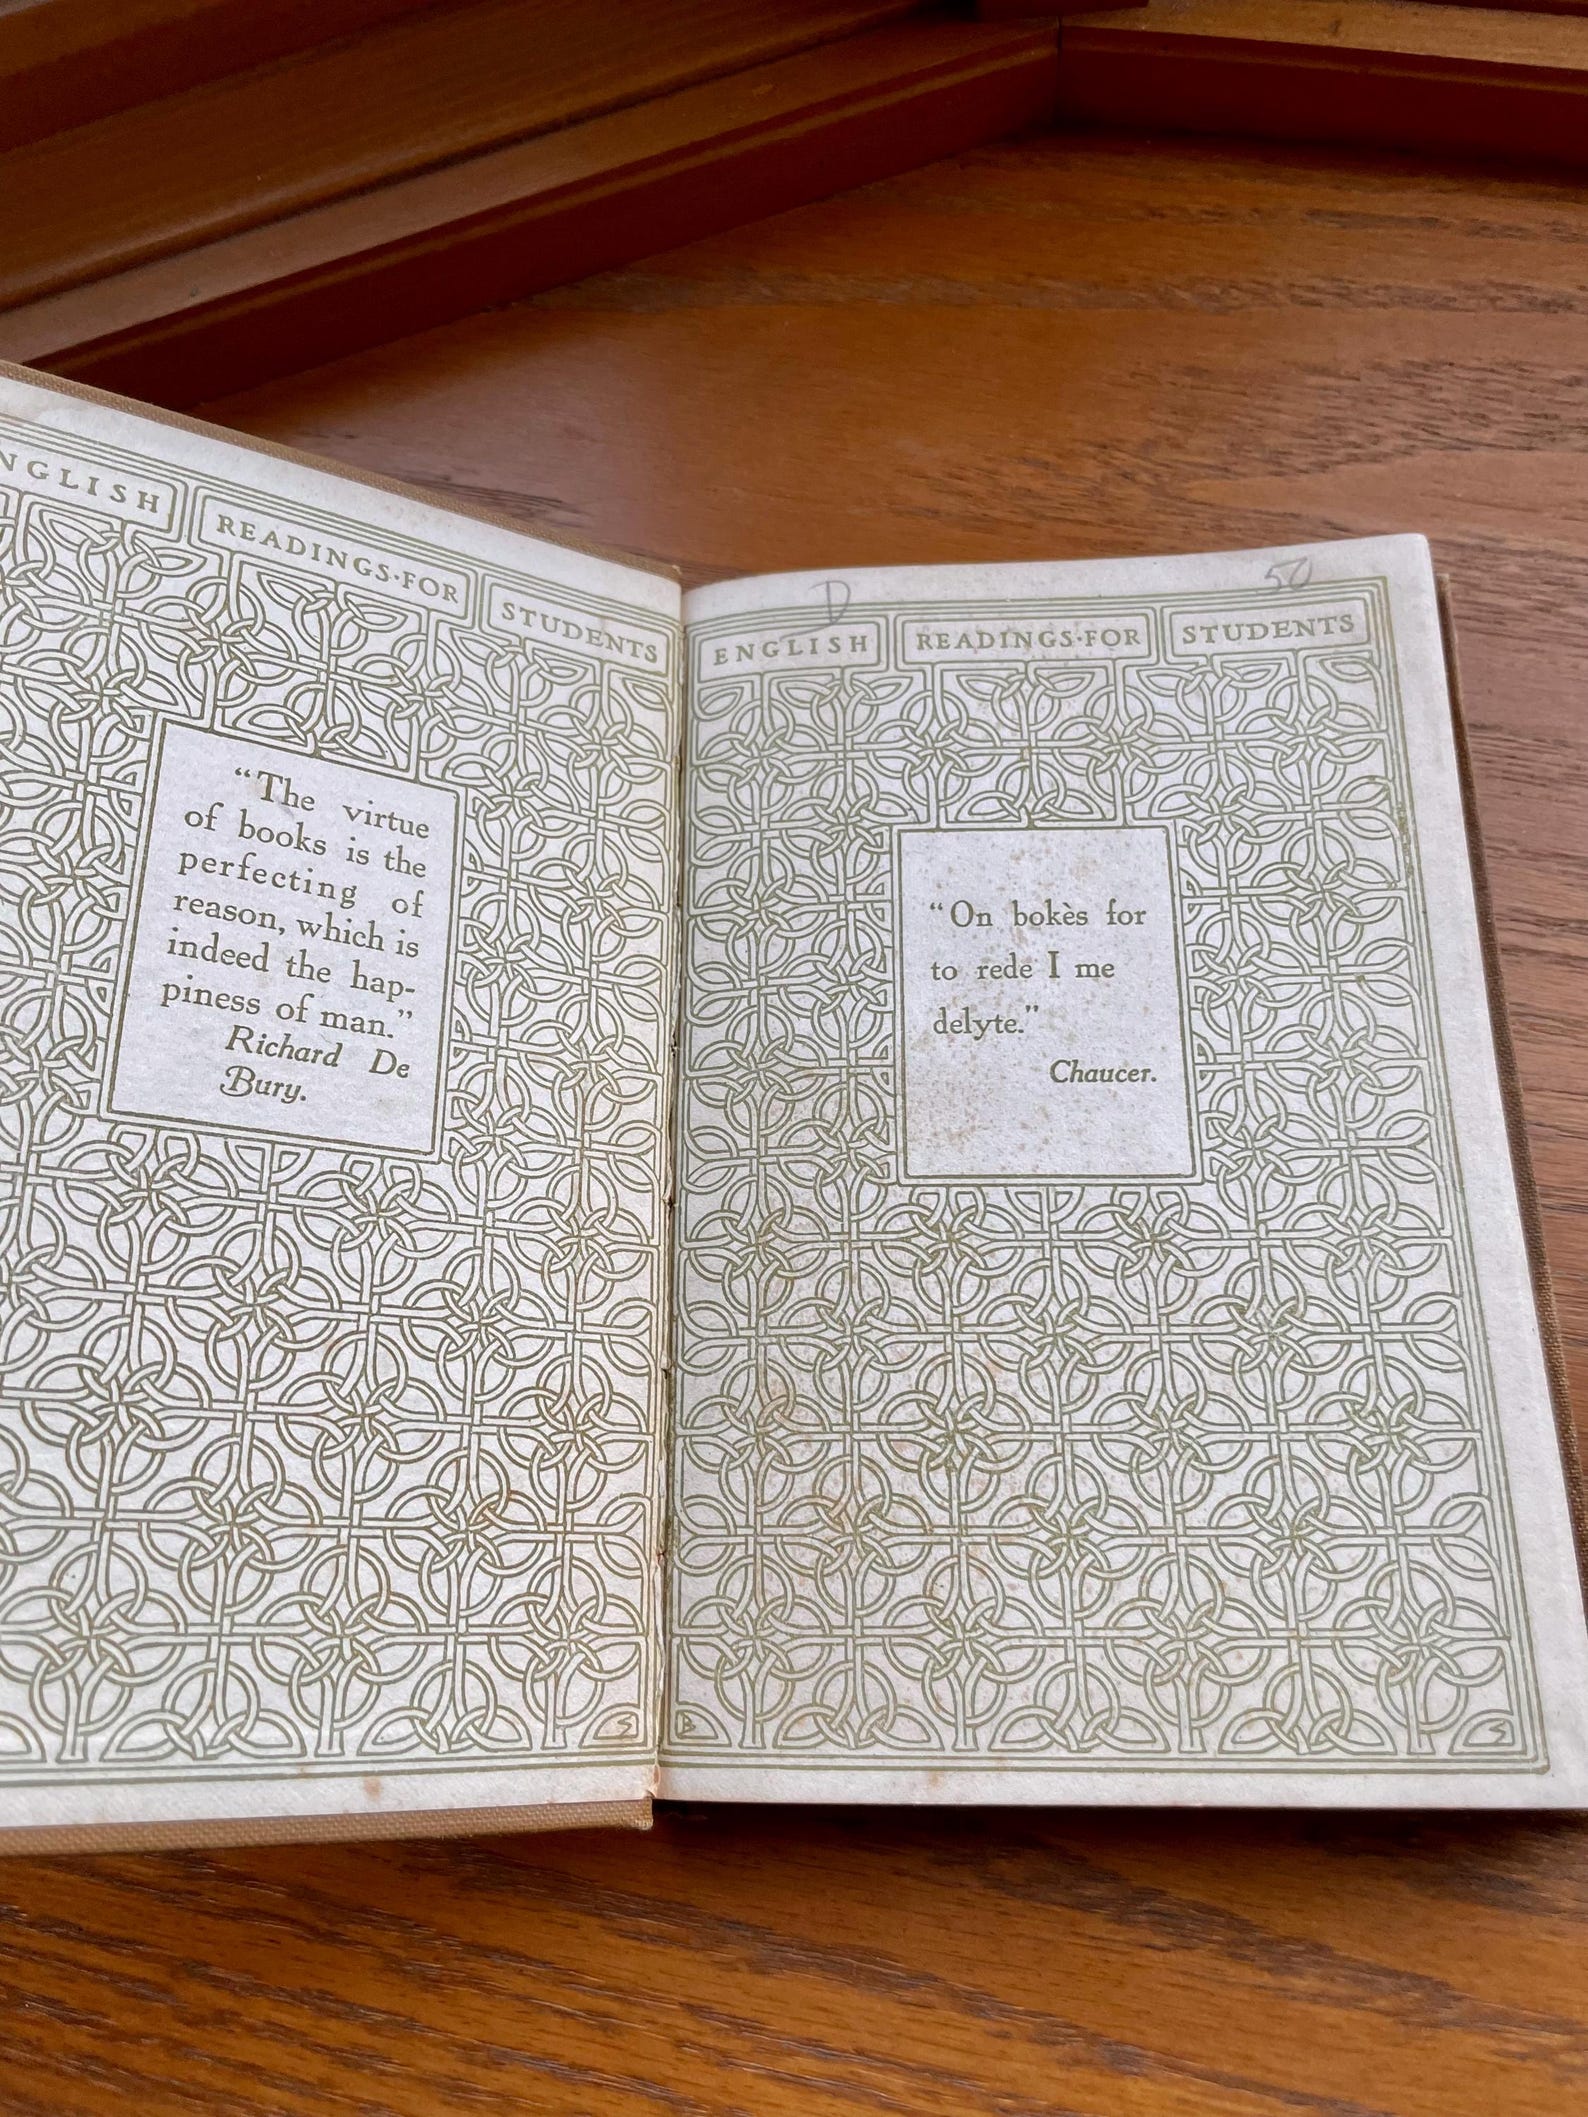 NGLISH READINGS·FOR STUDENTS
“The virtue
of books is the
perfecting of
reason, which is
indeed the hap-
piness of man.”
Richard De
Bury.
S
D
50
ENGLISH READINGS·FOR STUDENTS
“On bokès for
to rede I me
delyte.”
Chaucer.
B
S